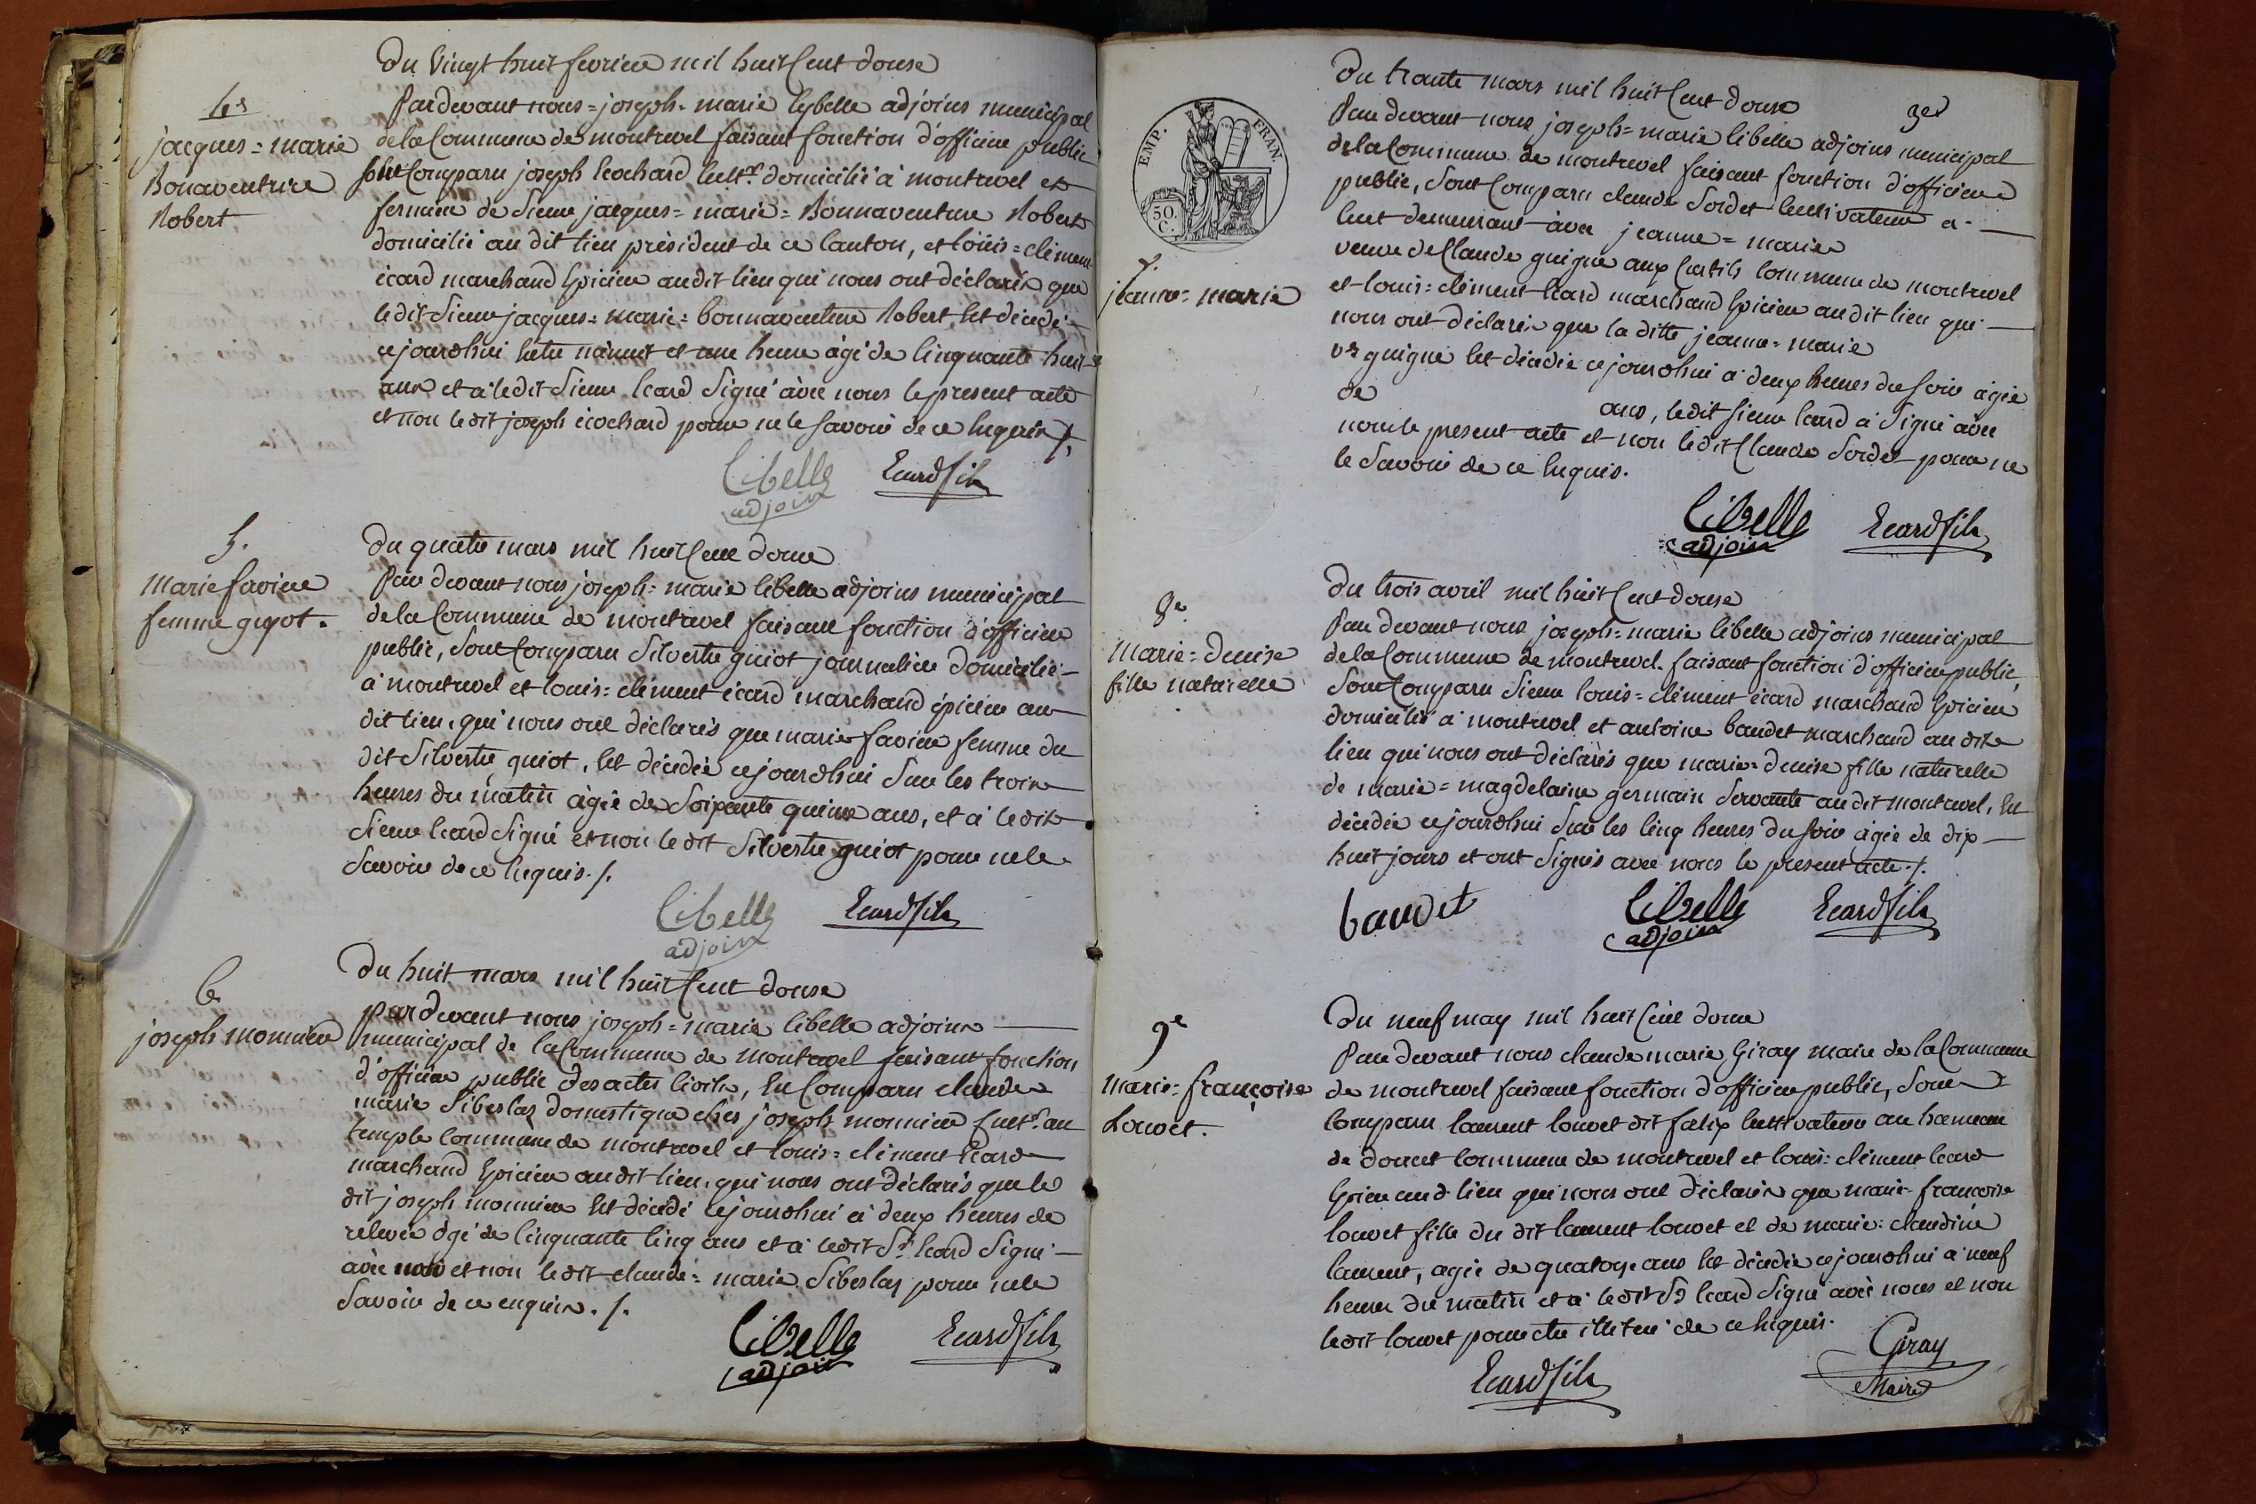 Du vingt huit fevrier mil huit Cent douse
4e
jacques=marie
Bonaventure
Robert
Par devant nous=joseph=marie lybelle adjoins municipal
de la Commune de montrevel faisant fonction d'officier public
sont Comparu joseph Ecochard Cultr. domicilié à montrevel et
fermier de Sieur jacques=marie=Bonnaventure Robert
domicilié au dit lieu président de ce Canton, et loüis=clément
écard marchand Epicier au dit lieu qui nous ont déclarés que
le dit Sieur jacques=marie=bonnaventure Robert Est décédé
cejourdhui Entre minuit et une heure âgé de Cinquante huit
ans et à ledit Sieur Ecard Signé avec nous le present acte
et non le dit joseph écochard pour ne le Savoir de ce Enquis /.
Libelle
adjoin
Ecard fils
5.
Marie favier
femme guyot.
Du quatre mars mil huit Cent douse
Par devant nous joseph=marie libelle adjoins municipal
de la Commune de montrevel faisant fonction d'officier
public, Sont Comparu Silvestre guiot journalier domicilié
à montrevel et louis=clément écard marchand épicier au
dit lieu, qui nous ont déclarés que marie favier femme du
dit Silvestre guiot, Est décédée cejourdhui Sur les trois
heures du matin âgée de Soixante quinze ans, et à le dit
Sieur Ecard Signé et non le dit Silvestre guiot pour ne le
Savoir de ce Enquis. /.
Libelle
adjoin
Ecard fils
6.
joseph monnier
Du huit mars mil huit Cent douse
pardevant nous joseph=marie libelle adjoins
municipal de la Commune de montrevel faisant fonction
d'officier public des actes Civils, Est Comparu claude
marie Sibeslas domestique chés joseph monnier Cultr. au
temple commune de montrevel et louis=clément Ecard
marchand Epicier au dit lieu, qui nous ont déclarés que le
dit joseph monnier Est décédé cejourdhui à deux heures de
relevée âgé de Cinquante Cinq ans et à ledit Sr. Ecard Signé
avec nous et non le dit claude=marie Sibeslas pour ne le
Savoir de ce enquis. /.
Libelle
adjoin
Ecard fils
EMP. FRAN.
50.
C.
3e
7.
jeanne=marie
Du trante mars mil huit Cent douse
Par devant nous joseph=marie libelle adjoins municipal
de la Commune de montrevel faisant fonction d'officier
public, Sont Comparu claude Sordet Cultivateur a
Cuet demeurant avec jeanne=marie
veuve de Claude guigue aux Curtils Commune de montrevel
et louis=clément Ecard marchand Epicier au dit lieu qui
nous ont déclarés que la ditte jeanne=marie
ve guigue Est décédée cejourdhui à deux heures du Soir âgée
de ans, le dit Sieur Ecard à Signé avec
nous le present acte et non le dit Claude Sordet pour ne
le Savoir de ce Enquis.
Libelle
adjoin
Ecard fils
8e
Marie=denise
fille naturelle
Du trois avril mil huit Cent douse
Par devant nous joseph=marie libelle adjoins municipal
de la Commune de montrevel faisant fonction d'officier public,
Sont Comparu Sieur louis=clément écard marchand Epicier
domicilié à montrevel et antoine baudet marchand au dit
lieu qui nous ont déclarés que marie=denise fille naturelle
de marie=magdelaine germain Servante au dit montrevel, Est
décédée cejourdhui Sur les Cinq heures du Soir âgée de dix
huit jours et ont Signés avec nous le present acte. /.
baudet
Libelle
adjoin
Ecard fils
9e
Marie=françoise
Louvet.
Du neuf may mil huit Cent douse
Par devant nous claude marie Giray maire de la Commune
de montrevel faisant fonction d'officier public, Sont
comparu laurent louvet dit felix Cultivateur au hameau
de doucet Commune de montrevel et louis=clément Ecard
Epicier aud. lieu qui nous ont déclarés que marie françoise
louvet fille du dit laurent louvet et de marie=claudine
laurent, agée de quatorze ans Est décédée cejourdhui à neuf
heures du matin et à ledit Sr Ecard Signé avec nous et non
ledit louvet pour être illiteré de ce Enquis.
Ecard fils
Giray
Maire